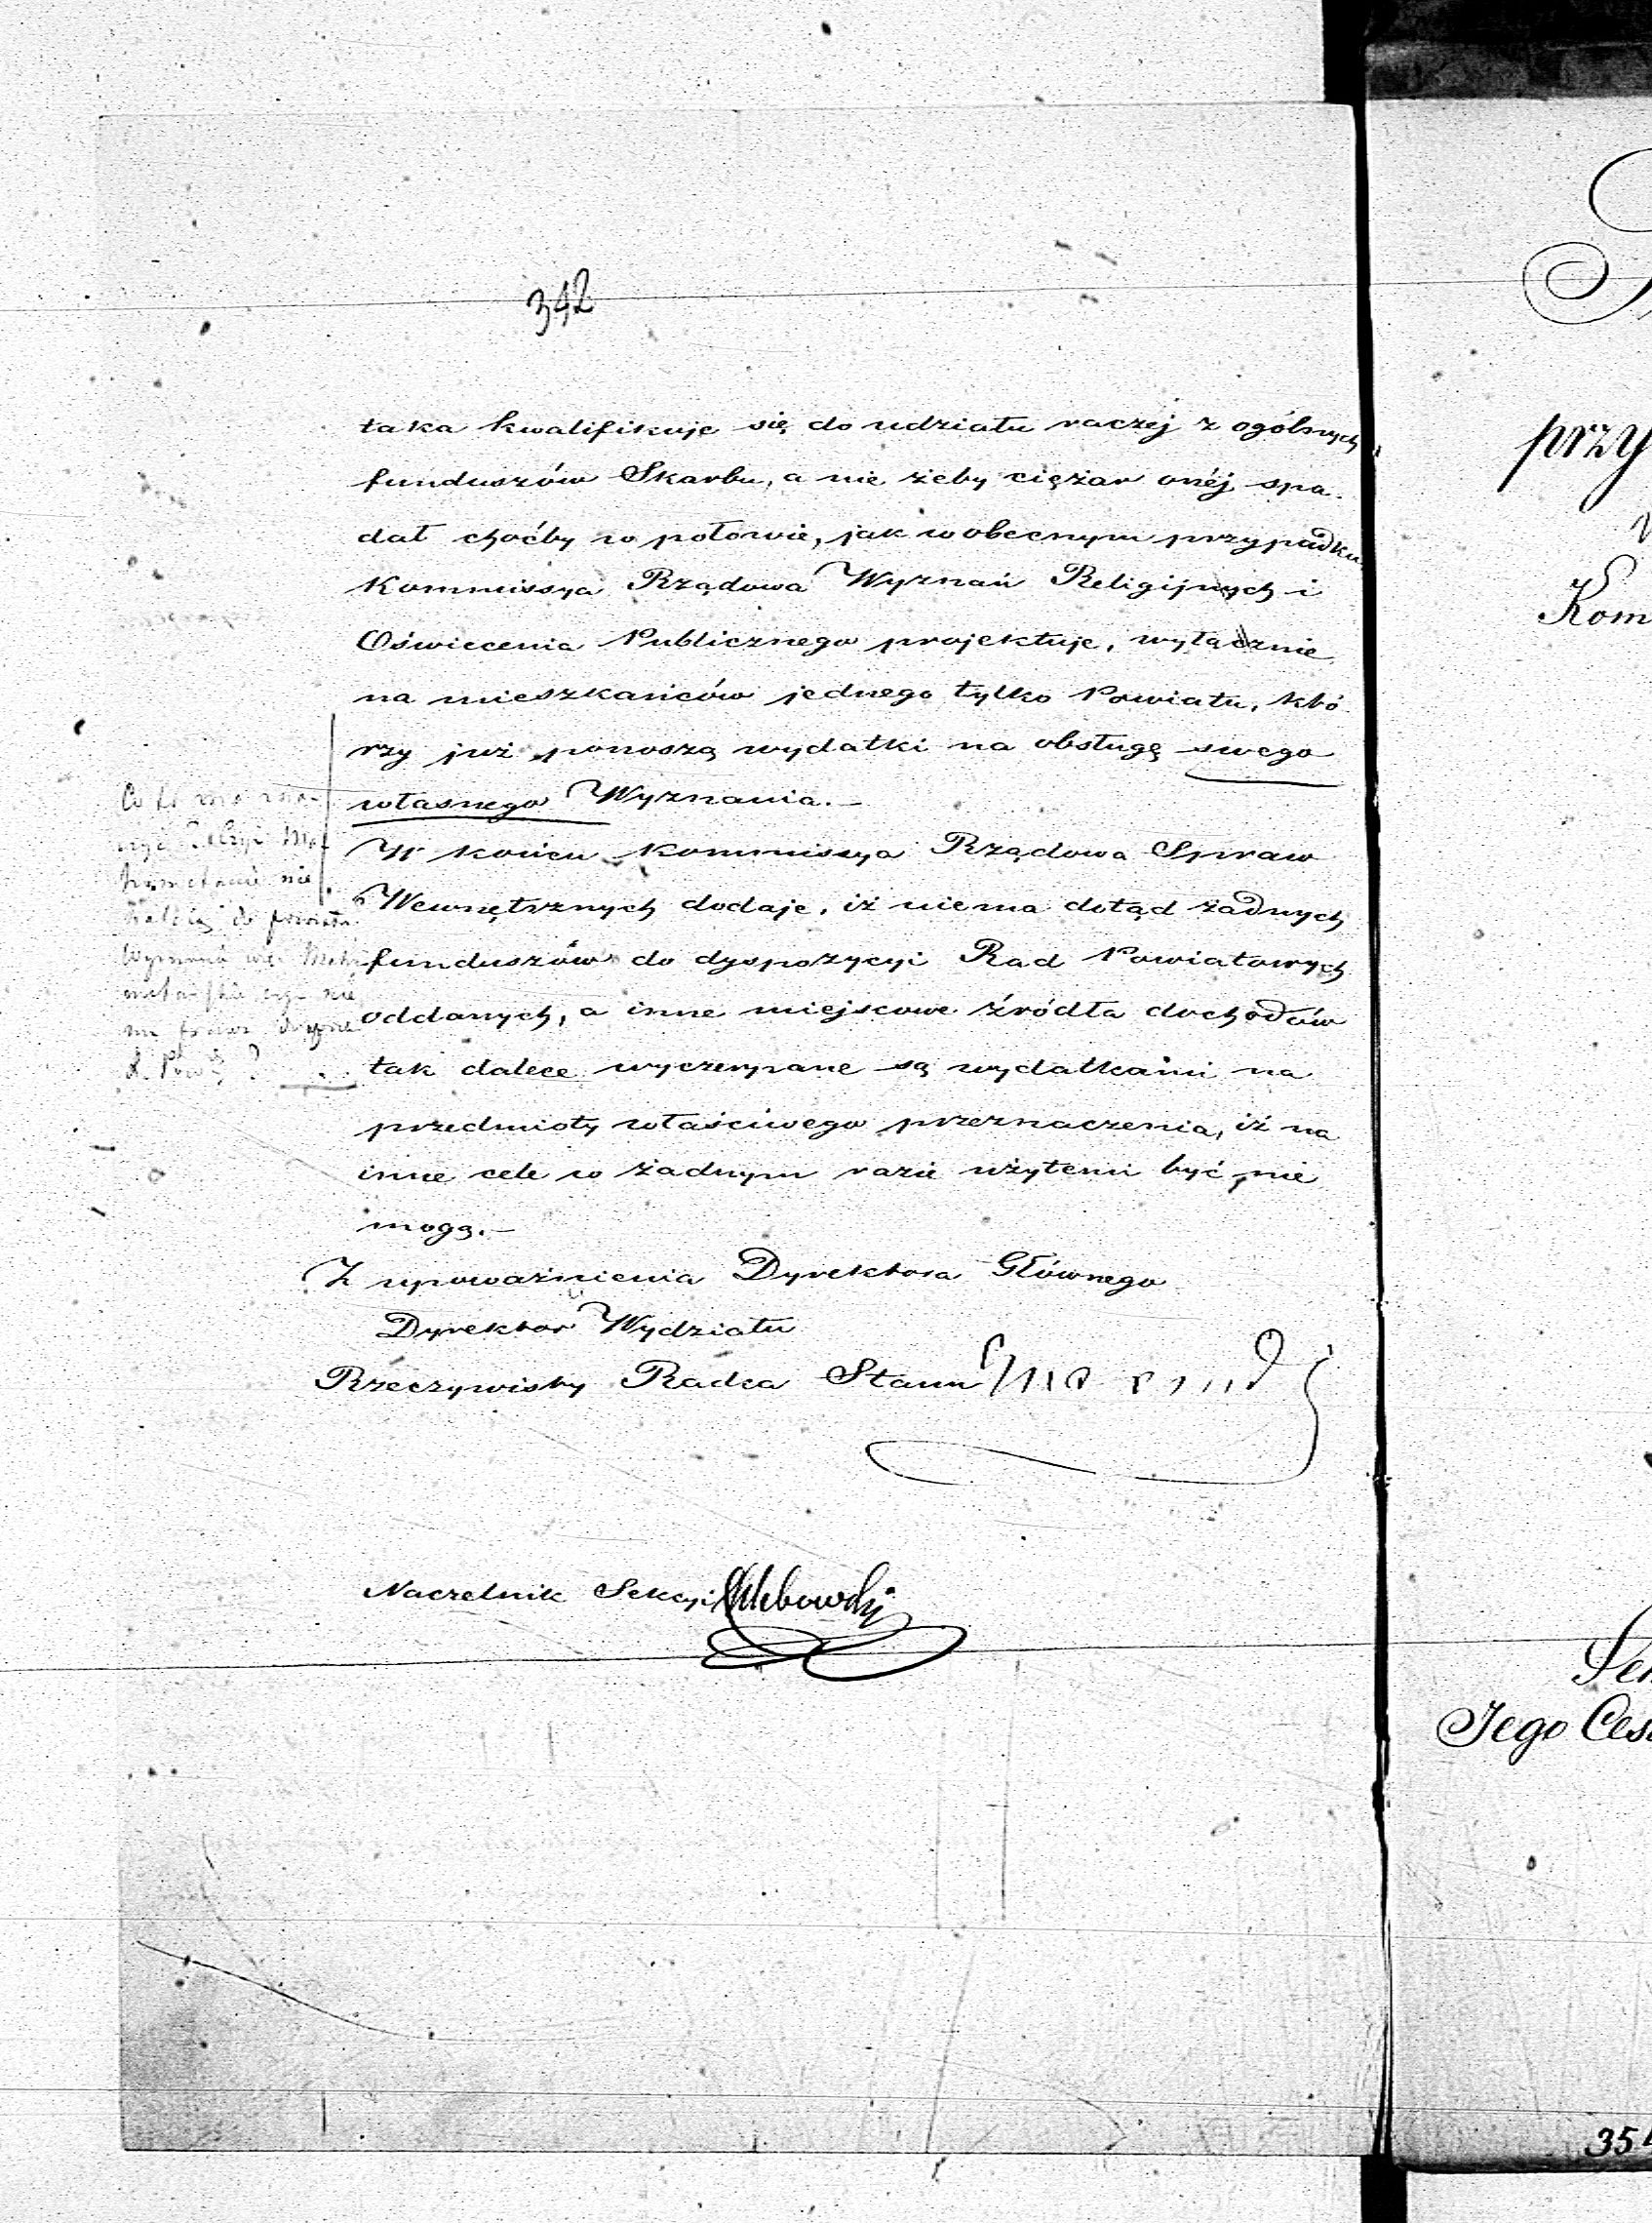 342
taka kwalifikuje się do udziału raczej z ogólnych
funduszów Skarbu, a nie żeby ciężar onéj spa-
dał choćby w połowie, jak w obecnym przypadku
Kommissya Rządowa Wyznań Religijnych i
Oświecenia Publicznego projektuje, wyłącznie
na mieszkańców jednego tylko Powiatu, któ-
rzy już ponoszą wydatki na obsługę swego
własnego Wyznania.—
W końcu Kommissya Rządowa Spraw
Wewnętrznych dodaje, iż niema dotąd żadnych
funduszów do dyspozycyi Rad Powiatowych
oddanych, a inne miejscowe źródła dochodów
tak dalece wyczerpane są wydatkami na
przedmioty właściwego przeznaczenia, iż na
inne cele w żadnym razie użytemi być nie
mogą.—
Z upoważnienia Dyrektora Głównego
Dyrektor Wydziału
Rzeczywisty Radca Stanu
Naczelnik Sekcyi
Co to ma zna-
nie
do powiatu
przy
Kom
Jego Ces
354